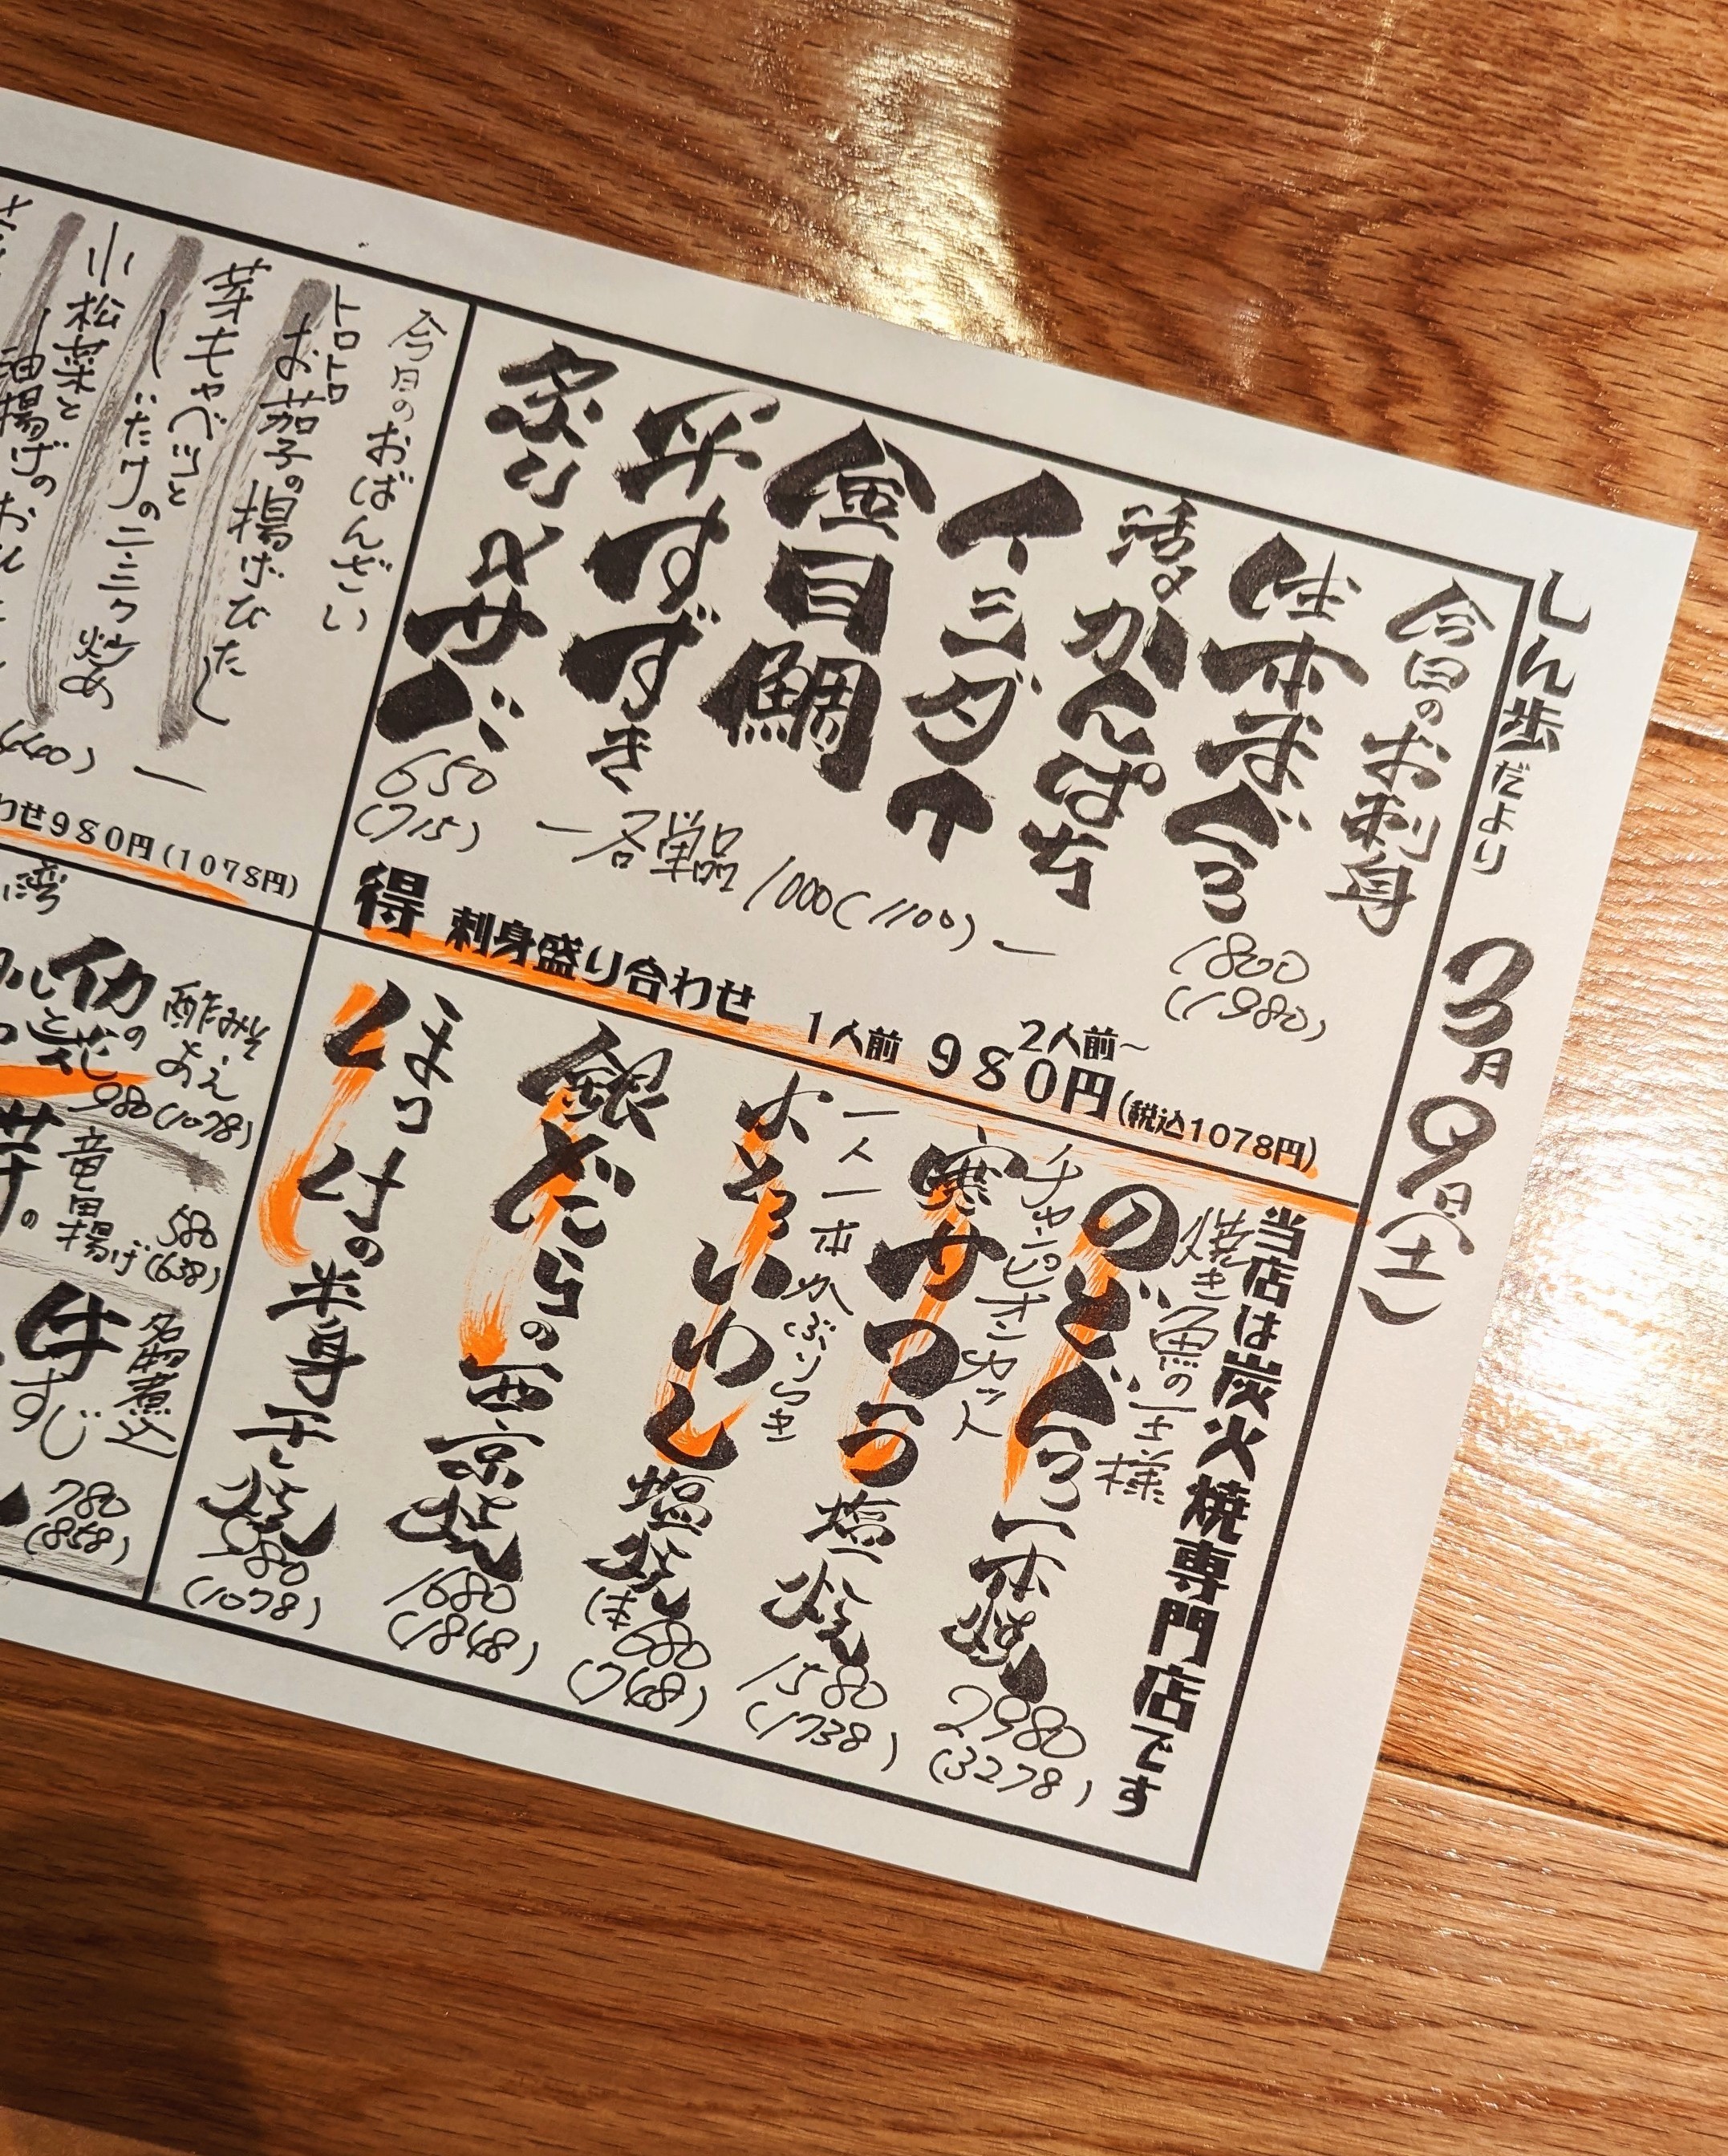 しん歩だより 3月9日(土)
今日のお刺身
生本まぐろ 1800 (1980)
活〆かんぱち
イシダイ
金目鯛
平すずき
炙り〆サバ 650 (715)
ー各単品 1000(1100)ー
得 刺身盛り合わせ 1人前 2人前~ 980円(税込1078円)
当店は炭火焼専門店です
焼き魚の王様
のどぐろ一本焼 2980 (3278)
チャンピオンカット
寒サワラ塩焼 1580 (1738)
一人一本かぶりつき
といわし塩焼 (本)680 (748)
銀だらの西京焼 1680 (1848)
ほっけの半身干し焼 980 (1078)
今日のおばんざい
トロトロ
お茄子の揚げびたし
芽キャベツと
しいたけのニンニク炒め
小松菜と
油揚げの
(440)ー
わせ980円(1078円)
湾
酢みそあえ
980(1078)
竜田揚げ 580 (638)
名物煮込
牛すじ 780 (858)